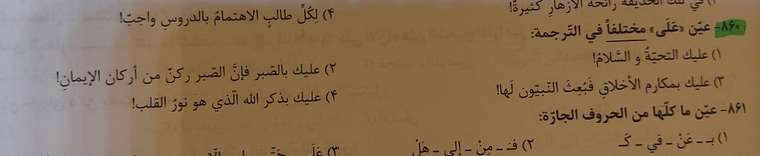 في تلك الحديقة رائحة الأزهار كثيرة!
۴) لِكُلِّ طالبٍ الاهتمامُ بالدروسِ واجبٌ!
۸۶۰- عيّن «عَلَی» مختلفاً في التّرجمة:
۱) عليك التحيّةُ و السَّلامُ!
۲) عليك بالصّبر فإنَّ الصّبر ركنٌ من أركان الإيمانِ!
۳) عليك بمكارم الأخلاقِ فَبُعِثَ النّبيّون لَها!
۴) عليك بذكر الله الّذي هو نورُ القلب!
۸۶۱- عيّن ما كلّها من الحروف الجارّة:
۱) بـِ ـ عَنْ ـ في ـ كَـ
۲) فـَ ـ مِنْ ـ إلی ـ هَلْ
۳) عَلَی ـ